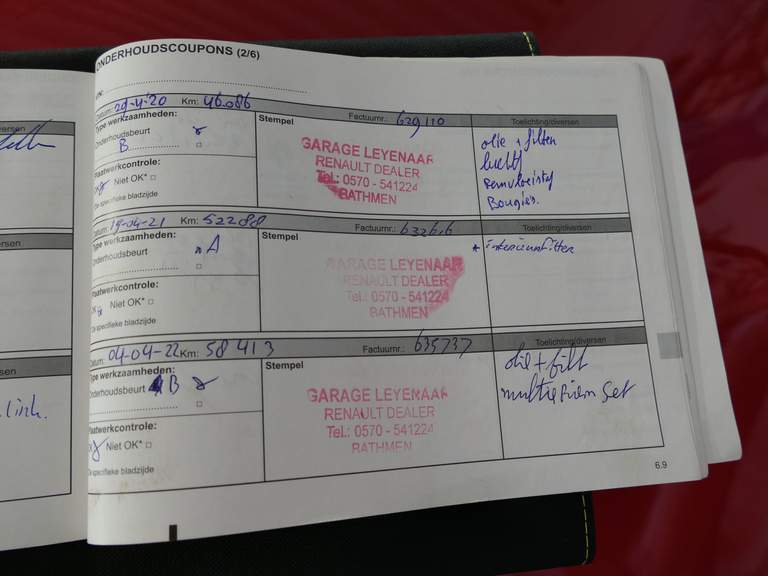 ONDERHOUDSCOUPONS (2/6)
Datum: 29-4-'20 Km: 46.086 Factuurnr.: 629110 Toelichting/diversen
Type werkzaamheden:
Onderhoudsbeurt
B
Stempel
GARAGE LEYENAAR
RENAULT DEALER
Tel.: 0570 - 541224
BATHMEN
olie + filter
luchtf
remvloeistof
Bougies.
Plaatwerkcontrole:
Niet OK*
specifieke bladzijde
Datum: 19-04-21 Km: 52288 Factuurnr.: Toelichting/diversen
Type werkzaamheden:
Onderhoudsbeurt A
Stempel
GARAGE LEYENAAR
RENAULT DEALER
Tel.: 0570 - 541224
BATHMEN
* interieurfilter
Plaatwerkcontrole:
OK Niet OK*
*Zie specifieke bladzijde
Datum: 04-04-22 Km: 58413 Factuurnr.: 635737 Toelichting/diversen
Type werkzaamheden:
Onderhoudsbeurt B
Stempel
GARAGE LEYENAAR
RENAULT DEALER
Tel.: 0570 - 541224
BATHMEN
olie + filt
multiriem set
Plaatwerkcontrole:
Niet OK*
specifieke bladzijde
6.9